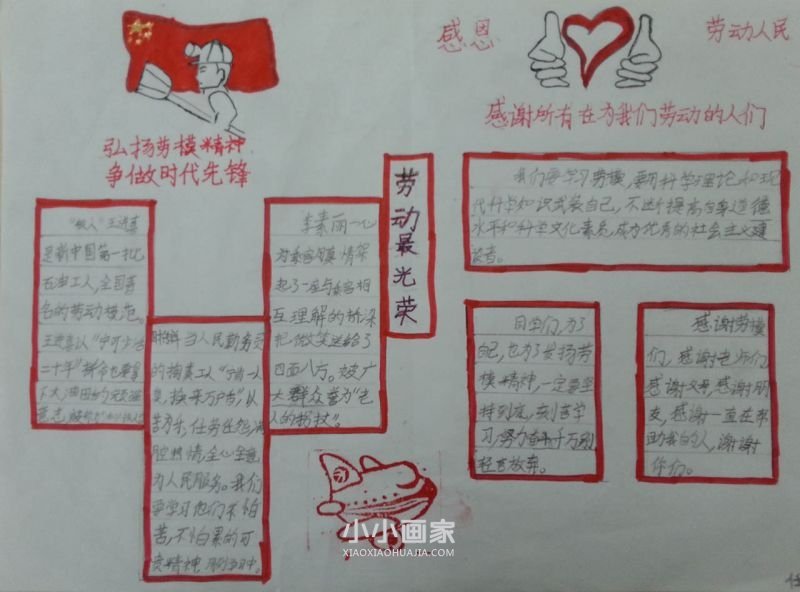 弘扬劳模精神
争做时代先锋
感恩
劳动人民
感谢所有在为我们劳动的人们
劳动最光荣
"铁人"王进喜
是新中国第一批
石油工人,全国著
名的劳动模范。
王进喜以"宁可少活
二十年"
时传祥当人民勤务员
的掏粪工以"宁肯一人
脏,换来万户洁",以
苦为乐,任劳任怨,满
腔热情,全心全意
为人民服务。我们
要学习他们不怕
苦,不怕累的可
贵精神
李素丽一心
为乘客
起了一座与乘客相
互理解的桥梁
把微笑送给了
四面八方。被广
大群众誉为"老
人的拐杖"。
我们要学习劳模,要用科学理论和现
代科学知识武装自己,不断提高自身道德
水平和科学文化素质,成为优秀的社会主义建
设者。
同学们,为了
自己,也为了发扬劳
模精神,一定要坚
持到底,刻苦学
习,努力奋斗千万别
轻言放弃。
感谢劳模
们,感谢老师们,
感谢父母,感谢朋
友,感谢一直在帮
助我的人,谢谢
你们。
小小画家
XIAOXIAOHUAJIA.COM